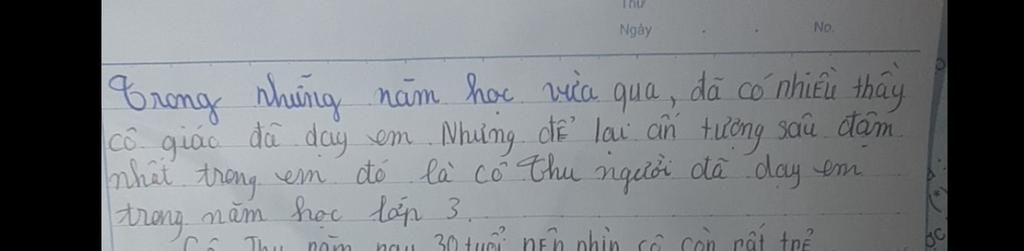 Thứ
Ngày . . No.
Trong những năm học vừa qua, đã có nhiều thầy
cô giáo đã dạy em. Nhưng để lại ấn tượng sâu đậm
nhất trong em đó là cô Thu người đã dạy em
trong năm học lớp 3.
Cô Thu năm nay 30 tuổi nên nhìn cô còn rất trẻ